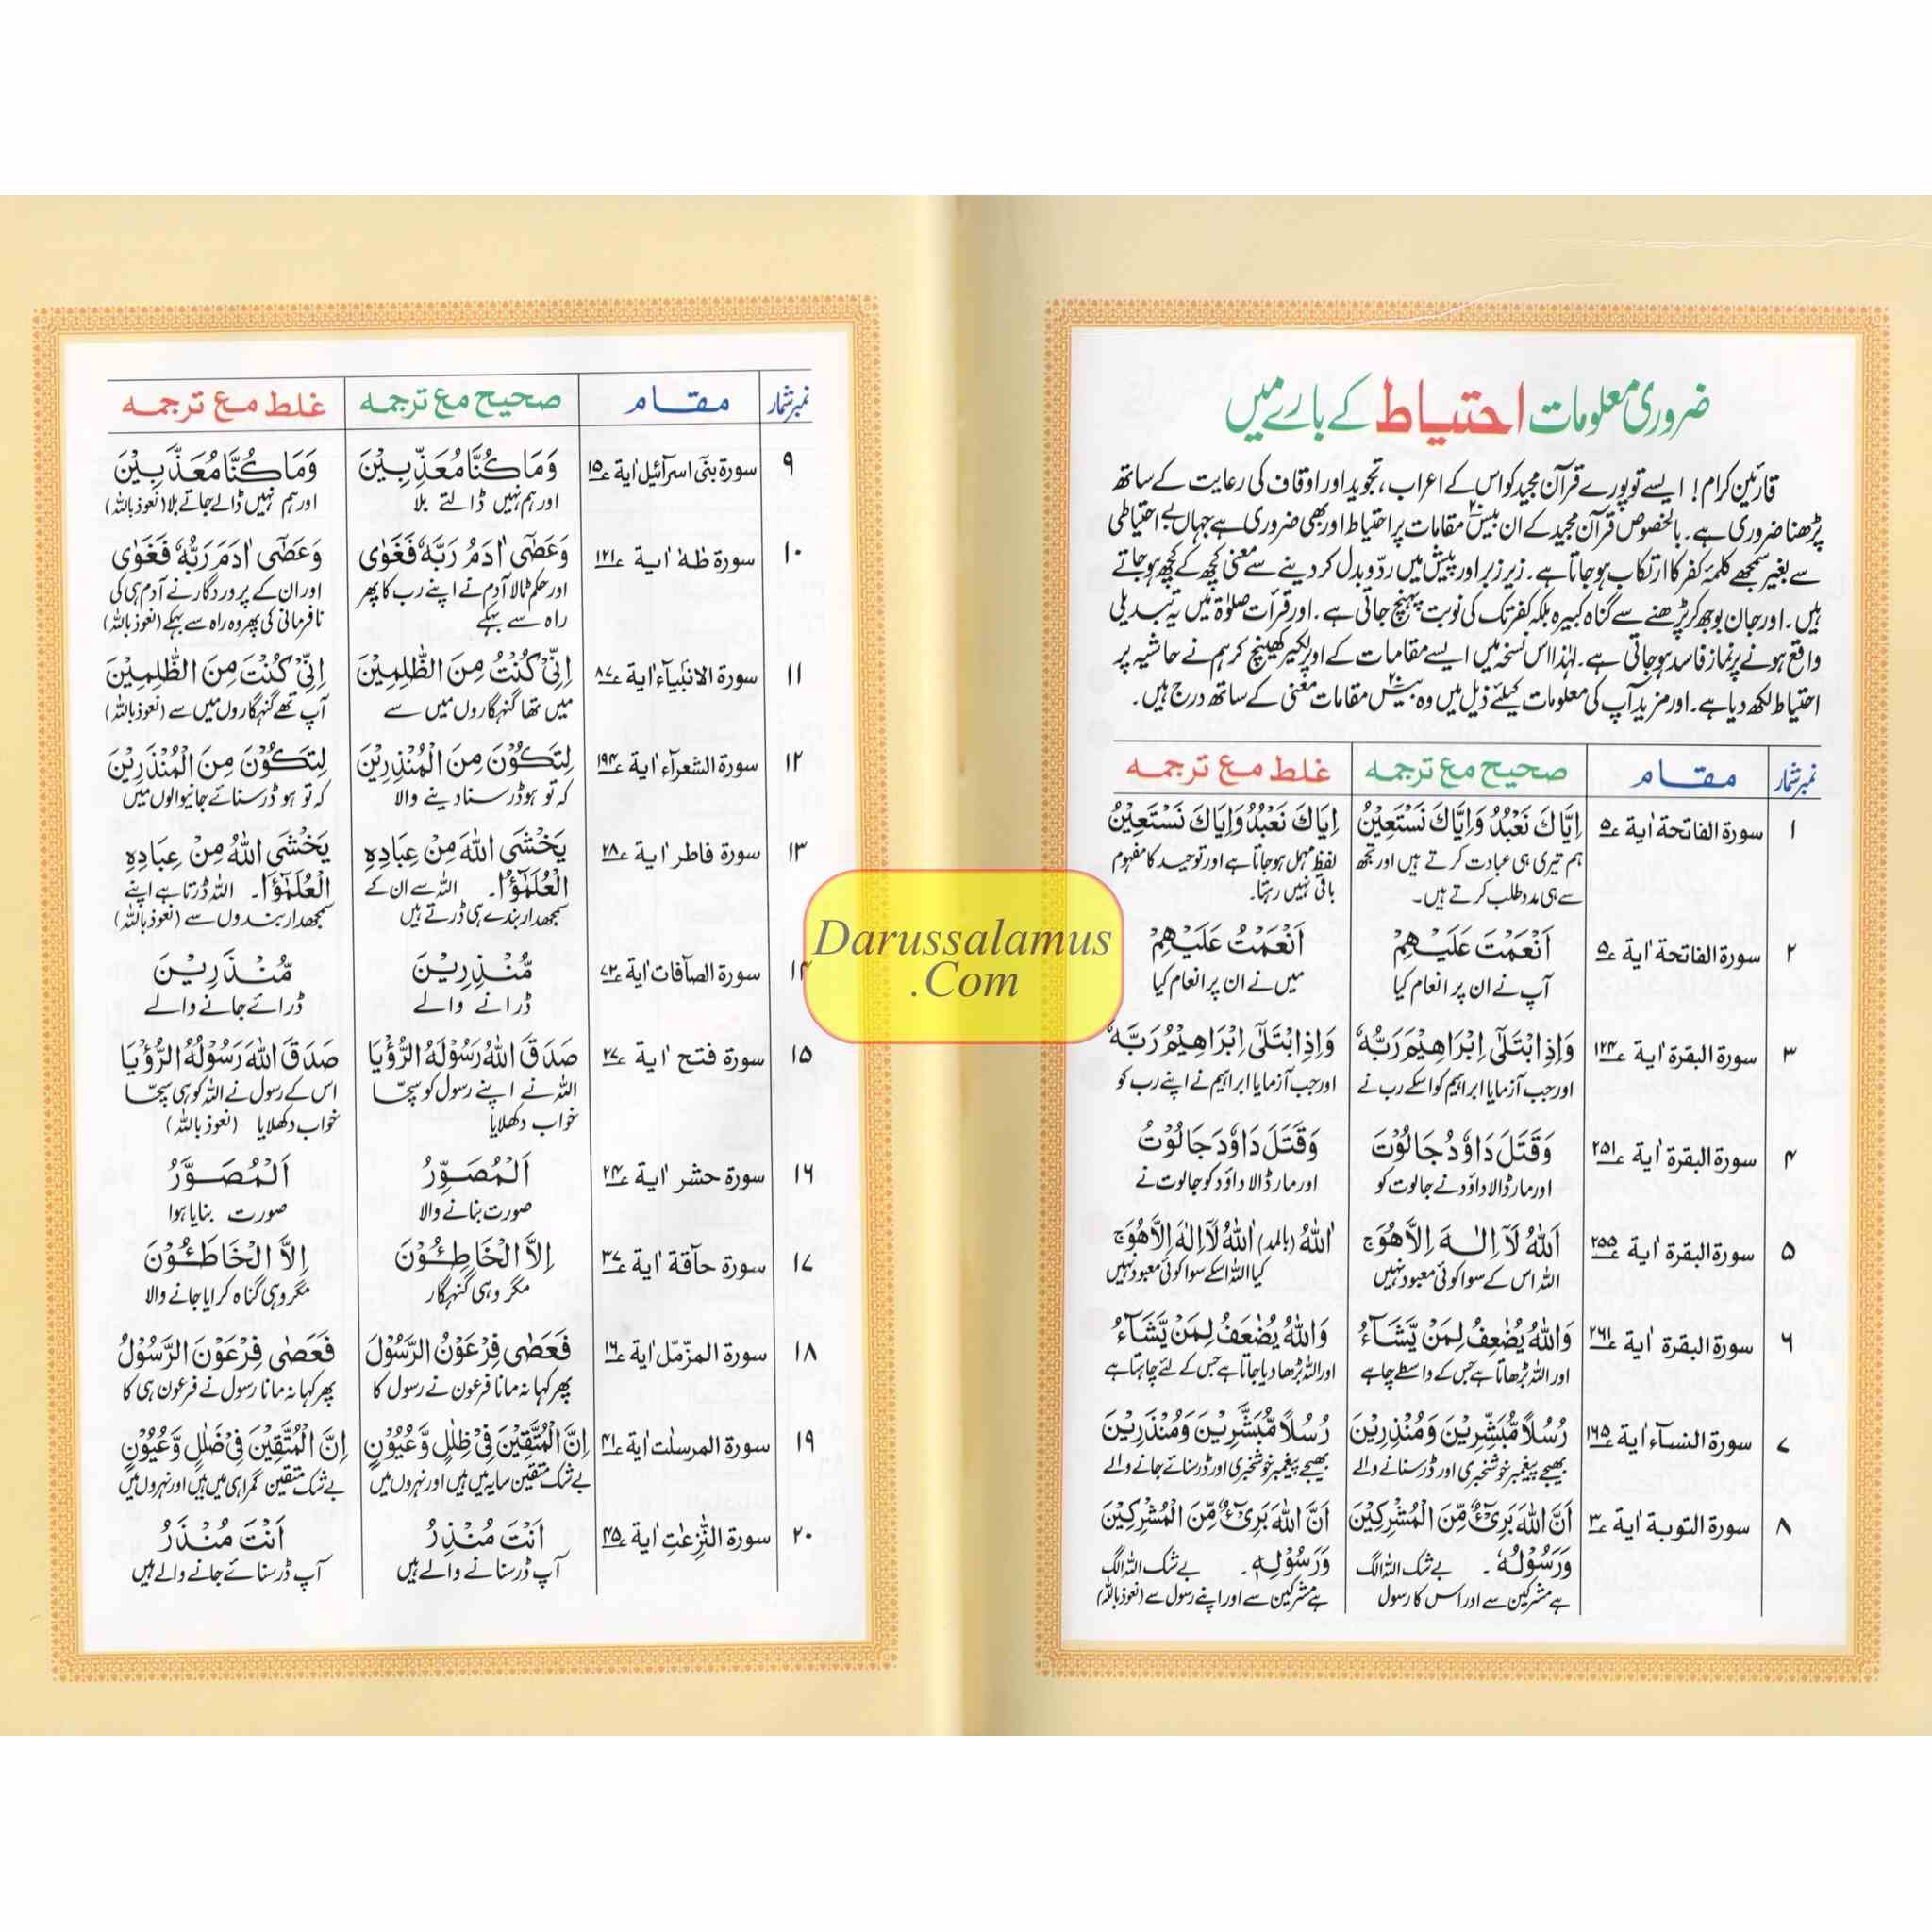 ضروری معلومات احتیاط کے بارے میں
قارئین کرام! ایسے تو پورے قرآن مجید کو اس کے اعراب، تجوید اور اوقاف کی رعایت کے ساتھ
پڑھنا ضروری ہے۔ بالخصوص قرآن مجید کے ان بیس۲۰ مقامات پر احتیاط اور بھی ضروری ہے جہاں بے احتیاطی
سے بغیر سمجھے کلمۂ کفر کا ارتکاب ہو جاتا ہے۔ زیر زبر اور پیش میں ردّ و بدل کر دینے سے معنی کچھ کے کچھ ہو جاتے
ہیں۔ اور جان بوجھ کر پڑھنے سے گناہ کبیرہ بلکہ کفر تک کی نوبت پہنچ جاتی ہے۔ اور قرأت صلوٰۃ میں یہ تبدیلی
واقع ہونے پر نماز فاسد ہو جاتی ہے۔ لہٰذا اس نسخہ میں ایسے مقامات کے اوپر لکیر کھینچ کر ہم نے حاشیہ پر
احتیاط لکھ دیا ہے۔ اور مزید آپ کی معلومات کیلئے ذیل میں وہ بیس۲۰ مقامات معنی کے ساتھ درج ہیں۔
نمبر شمار مقام صحیح مع ترجمہ غلط مع ترجمہ
۱ سورة الفاتحة اٰیة ۵ اِيَّاكَ نَعْبُدُ وَاِيَّاكَ نَسْتَعِيْنُ اِيَاكَ نَعْبُدُ وَاِيَاكَ نَسْتَعِيْنُ
ہم تیری ہی عبادت کرتے ہیں اور تجھ لفظ مہمل ہو جاتا ہے اور توحید کا مفہوم
سے ہی مدد طلب کرتے ہیں۔ باقی نہیں رہتا۔
۲ سورة الفاتحة اٰیة ۵ اَنْعَمْتَ عَلَيْهِمْ اَنْعَمْتُ عَلَيْهِمْ
آپ نے ان پر انعام کیا میں نے ان پر انعام کیا
۳ سورة البقرة اٰیة ۱۲۴ وَاِذِ ابْتَلٰٓى اِبْرَاهِيْمَ رَبُّهٗ وَاِذِ ابْتَلٰٓى اِبْرَاهِيْمُ رَبَّهٗ
اور جب آزمایا ابراہیم کو اسکے رب نے اور جب آزمایا ابراہیم نے اپنے رب کو
۴ سورة البقرة اٰیة ۲۵۱ وَقَتَلَ دَاوٗدُ جَالُوْتَ وَقَتَلَ دَاوٗدَ جَالُوْتُ
اور مار ڈالا داؤد نے جالوت کو اور مار ڈالا داؤد کو جالوت نے
۵ سورة البقرة اٰیة ۲۵۵ اَللّٰهُ لَآ اِلٰهَ اِلَّا هُوَ ج اٰللّٰهُ (بالمد) اَللّٰهُ لَآ اِلٰهَ اِلَّا هُوَ ج
اللہ اس کے سوا کوئی معبود نہیں کیا اللہ اسکے سوا کوئی معبود نہیں
۶ سورة البقرة اٰیة ۲۶۱ وَاللّٰهُ يُضٰعِفُ لِمَنْ يَّشَآءُ وَاللّٰهُ يُضٰعَفُ لِمَنْ يَّشَآءُ
اور اللہ بڑھاتا ہے جس کے واسطے چاہے اور اللہ بڑھا دیا جاتا ہے جس کے لئے چاہتا ہے
۷ سورة النسآء اٰیة ۱۶۵ رُسُلًا مُّبَشِّرِيْنَ وَمُنْذِرِيْنَ رُسُلًا مُّبَشَّرِيْنَ وَمُنْذَرِيْنَ
بھیجے پیغمبر خوشخبری اور ڈر سنانے والے بھیجے پیغمبر خوشخبری اور ڈر سنائے جانے والے
۸ سورة التوبة اٰیة ۳ اَنَّ اللّٰهَ بَرِىْٓءٌ مِّنَ الْمُشْرِكِيْنَ اَنَّ اللّٰهَ بَرِىْٓءٌ مِّنَ الْمُشْرِكِيْنَ
وَرَسُوْلُهٗ۔ بے شک اللہ الگ وَرَسُوْلِهٖ۔ بے شک اللہ الگ
ہے مشرکین سے اور اس کا رسول ہے مشرکین سے اور اپنے رسول سے (نعوذ باللہ)
نمبر شمار مقام صحیح مع ترجمہ غلط مع ترجمہ
۹ سورة بنیٓ اسرآئیل اٰیة ۱۵ وَمَا كُنَّا مُعَذِّبِيْنَ وَمَا كُنَّا مُعَذَّبِيْنَ
اور ہم نہیں ڈالتے بلا اور ہم نہیں ڈالے جاتے بلا (نعوذ باللہ)
۱۰ سورة طٰهٰ اٰیة ۱۲۱ وَعَصٰٓى اٰدَمُ رَبَّهٗ فَغَوٰى وَعَصٰٓى اٰدَمَ رَبُّهٗ فَغَوٰى
اور حکم ٹالا آدم نے اپنے رب کا پھر اور ان کے پروردگار نے آدم ہی کی
راہ سے بہکے نافرمانی کی پھر وہ راہ سے بہکے (نعوذ باللہ)
۱۱ سورة الانبیآء اٰیة ۸۷ اِنِّىْ كُنْتُ مِنَ الظّٰلِمِيْنَ اِنِّىْ كُنْتَ مِنَ الظّٰلِمِيْنَ
میں تھا گنہگاروں میں سے آپ تھے گنہگاروں میں سے (نعوذ باللہ)
۱۲ سورة الشعرآء اٰیة ۱۹۴ لِتَكُوْنَ مِنَ الْمُنْذِرِيْنَ لِتَكُوْنَ مِنَ الْمُنْذَرِيْنَ
کہ تو ہو ڈر سنا دینے والا کہ تو ہو ڈر سنائے جانیوالوں میں
۱۳ سورة فاطر اٰیة ۲۸ يَخْشَى اللّٰهَ مِنْ عِبَادِهِ يَخْشَى اللّٰهُ مِنْ عِبَادِهِ
الْعُلَمٰٓؤُا۔ اللہ سے ان کے الْعُلَمٰٓؤَا۔ اللہ ڈرتا ہے اپنے
سمجھدار بندے ہی ڈرتے ہیں سمجھدار بندوں سے (نعوذ باللہ)
سورة الصآفات اٰیة ۷۲ مُّنْذِرِيْنَ مُّنْذَرِيْنَ
ڈرانے والے ڈرائے جانے والے
۱۵ سورة فتح اٰیة ۲۷ صَدَقَ اللّٰهُ رَسُوْلَهُ الرُّؤْيَا صَدَقَ اللّٰهَ رَسُوْلُهُ الرُّؤْيَا
اللہ نے اپنے رسول کو سچّا اس کے رسول نے اللہ کو ہی سچّا
خواب دکھلایا خواب دکھلایا (نعوذ باللہ)
۱۶ سورة حشر اٰیة ۲۴ اَلْمُصَوِّرُ اَلْمُصَوَّرُ
صورت بنانے والا صورت بنایا ہوا
۱۷ سورة حآقة اٰیة ۳۷ اِلَّا الْخَاطِئُوْنَ اِلَّا الْخَاطَئُوْنَ
مگر وہی گنہگار مگر وہی گناہ کرایا جانے والا
۱۸ سورة المزّمّل اٰیة ۱۶ فَعَصٰى فِرْعَوْنُ الرَّسُوْلَ فَعَصٰى فِرْعَوْنَ الرَّسُوْلُ
پھر کہا نہ مانا فرعون نے رسول کا پھر کہا نہ مانا رسول نے فرعون ہی کا
۱۹ سورة المرسلٰت اٰیة ۴۱ اِنَّ الْمُتَّقِيْنَ فِىْ ظِلٰلٍ وَّعُيُوْنٍ اِنَّ الْمُتَّقِيْنَ فِىْ ضَلٰلٍ وَّعُيُوْنٍ
بے شک متقین سایہ میں ہیں اور نہروں میں بے شک متقین گمراہی میں ہیں اور نہروں میں
۲۰ سورة النّٰزعٰت اٰیة ۴۵ اَنْتَ مُنْذِرُ اَنْتَ مُنْذَرُ
آپ ڈر سنانے والے ہیں آپ ڈر سنائے جانے والے ہیں
Darussalamus
.Com